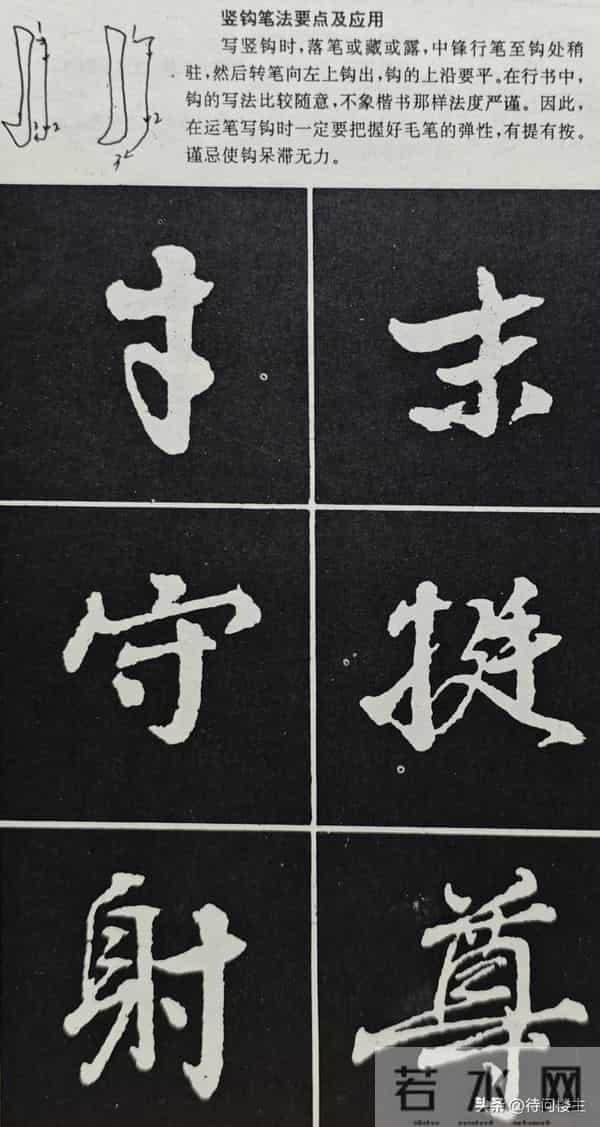 竖钩笔法要点及应用
写竖钩时，落笔或藏或露，中锋行笔至钩处稍
驻，然后转笔向左上钩出，钩的上沿要平。在行书中，
钩的写法比较随意，不象楷书那样法度严谨。因此，
在运笔写钩时一定要把握好毛笔的弹性，有提有按。
谨忌使钩呆滞无力。
1 2
1 2 3
才 末
守 挺
射 尊
若水网
头条@待问楼主